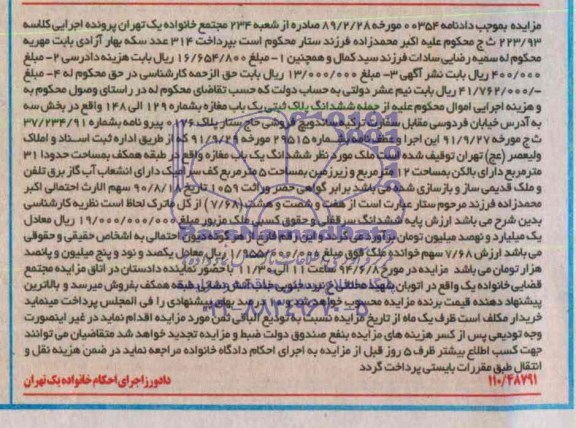 مزایده بموجب دادنامه ۰۰۳۵۴ مورخه ۸۹/۲/۲۸ صادره از شعبه ۲۳۴ مجتمع خانواده یک تهران پرونده اجرایی کلاسه
۲۲۳/۹۳ ث ج محکوم علیه اکبر محمدزاده فرزند ستار محکوم است بپرداخت ۳۱۴ عدد سکه بهار آزادی بابت مهریه
محکوم له سمیه رضایی سادات فرزند سید کمال و همچنین ۱- مبلغ ۱۶/۶۵۴/۸۰۰ ریال بابت هزینه دادرسی ۲- مبلغ
۴۰۰/۰۰۰ ریال بابت نشر آگهی ۳- مبلغ ۱۳/۰۰۰/۰۰۰ ریال بابت حق الزحمه کارشناسی در حق محکوم له ۴- مبلغ
۴۱/۷۶۲/۰۰۰/- ریال بابت نیم عشر دولتی به حساب دولت که حسب تقاضای محکوم له در راستای وصول محکوم به
و هزینه اجرایی اموال محکوم علیه از جمله ششدانگ پلاک ثبتی یک باب مغازه بشماره ۱۲۹ الی ۱۴۸ واقع در بخش سه
به آدرس خیابان فردوسی مقابل سفارت ترکیه ساندویچ فروشی حاج ستار پلاک ۵۲۶ پیرو نامه بشماره ۳۷/۲۳۴/۹۱
ث ج مورخه ۹۱/۹/۲۷ این اجرا و عطف نامه بشماره ۲۹۵۱۵ مورخه ۹۱/۹/۲۹ که از طریق اداره ثبت اسناد و املاک
ولیعصر (عج) تهران توقیف شده است ملک مورد نظر ششدانگ یک باب مغازه واقع در طبقه همکف بمساحت حدودا ۳۱
مترمربع دارای بالکن بمساحت ۱۲ مترمربع و زیرزمین بمساحت ۵ مترمربع کف سرامیک دارای انشعاب آب گاز برق تلفن
و ملک قدیمی ساز و بازسازی شده می باشد برابر گواهی حصر وراثت ۱۰۵۹ تاریخ ۹۰/۸/۱۸ سهم الارث احتمالی اکبر
محمدزاده فرزند مرحوم ستار عبارت است از هفت و شصت و هشتم (۷/۶۸) از کل ماترک لحاظ است نظریه کارشناسی
بدین شرح می باشد ارزش پایه ششدانگ سرقفلی و حقوق کسبی ملک مزبور مبلغ ۱۹/۰۰۰/۰۰۰/۰۰۰ ریال معادل
یک میلیارد و نهصد میلیون تومان برآورد می گردد و این رقم فارغ از هر گونه دیون احتمالی به اشخاص حقیقی و حقوقی
می باشد ارزش ۷/۶۸ سهم خوانده ملک فوق مبلغ ۱/۹۵۵/۰۰۰/۰۰۰ ریال معادل یکصد و نود و پنج میلیون و پانصد
هزار تومان می باشد مزایده در مورخ ۹۴/۶/۸ ساعت ۱۱ الی ۱۱/۳۰ با حضور نماینده دادستان در اتاق مزایده مجتمع
قضایی خانواده یک واقع در اتوبان شهید محلاتی نبرد جنوبی جنب آتش نشانی طبقه همکف بفروش میرسد و بالاترین
پیشنهاد دهنده قیمت برنده مزایده محسوب خواهد شد و ده درصد بهای پیشنهادی را فی المجلس پرداخت مینماید
خریدار مکلف است ظرف یک ماه از تاریخ مزایده نسبت به تودیع الباقی ثمن مورد مزایده اقدام نماید در غیر اینصورت
وجه تودیعی پس از کسر هزینه های مزایده بنفع صندوق دولت ضبط و مزایده تجدید خواهد شد متقاضیان می توانند
جهت کسب اطلاع بیشتر ظرف ۵ روز قبل از مزایده به اجرای احکام دادگاه خانواده مراجعه نماید در ضمن هزینه نقل و
انتقال طبق مقررات بایستی پرداخت گردد
۱۱۰/۴۸۷۹۱ دادورز اجرای احکام خانواده یک تهران